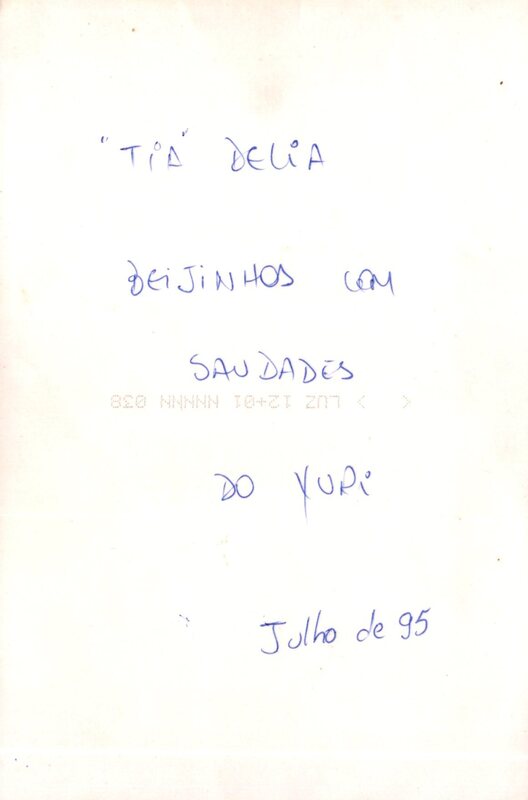 "TIA" DELIA
BEIJINHOS COM
SAUDADES
< > LUZ 12+01 NNNNN 038
DO YURI
Julho de 95